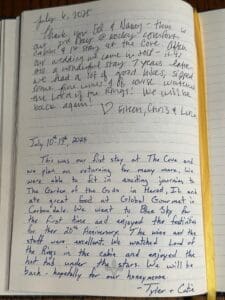 July 6, 2025
Thank you Ted & Nancy - this is
our 3rd time @ Rocky Comfort
Cabin & 1st stay at the Cove. After
our wedding we came in
had a wonderful stay 7 years later
we had a lot of good hikes, sipped
some fine wines & of course watched
the Lord of the Rings! We will be
back again!
♡ Eileen, Chris &
July 10th-13th 2025
This was our first stay at The Cove and
we plan on returning for many more. We
were able to fit in amazing learning in
The Garden of the Gods in Herod, IL and
ate great food at Global Gourmet in
Carbondale. We went to Blue Sky for
the first time and enjoyed the festivities
for their 20th Anniversary. The wine and the
staff were excellent. We watched Lord of
the Rings in the cabin and enjoyed the
hot tub under the stars. We will be
back - hopefully for our honeymoon.
- Tyler + Catie